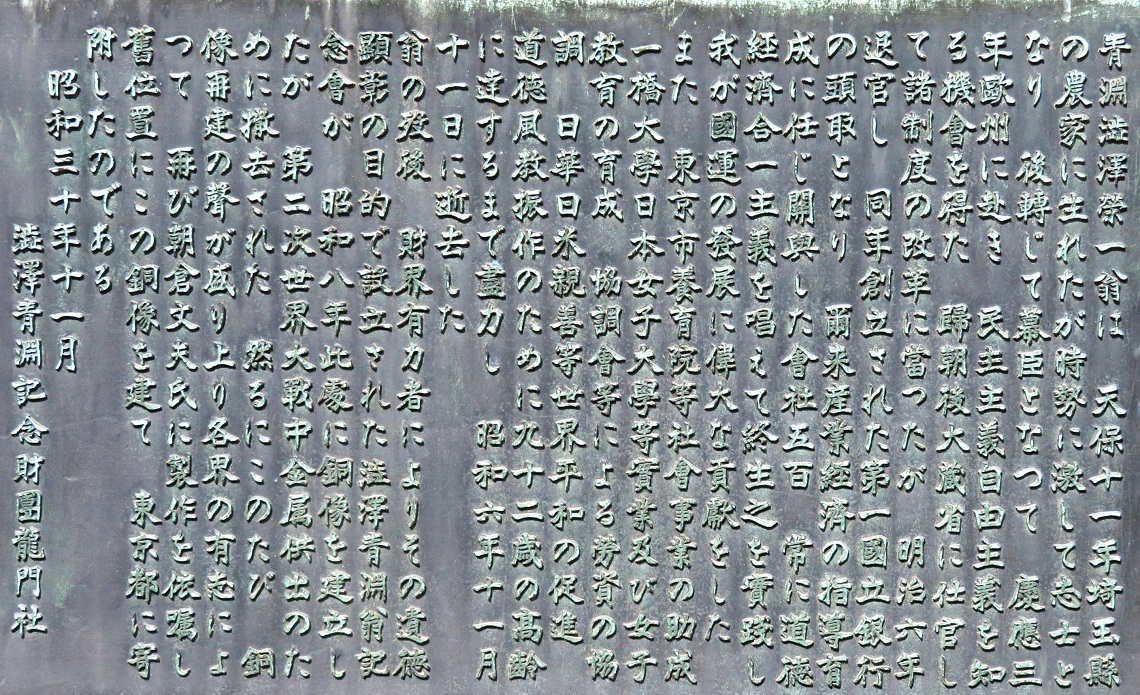 青淵澁澤榮一翁は　天保十一年埼玉縣
の農家に生れたが時勢に激して志士と
なり　後轉じて幕臣となつて　慶應三
年歐州に赴き　民主主義自由主義を知
る機會を得た　歸朝後大蔵省に仕官し
て諸制度の改革に當つたが　明治六年
退官し　同年創立された第一國立銀行
の頭取となり　爾来産業経済の指導育
成に任じ關與した會社五百　常に道徳
経済合一主義を唱えて終生之を實践し
我が國運の發展に偉大な貢献をした
また　東京市養育院等社會事業の助成
一橋大學日本女子大學等實業及び女子
教育の育成　協調會等による労資の協
調　日華日米親善等世界平和の促進
道徳風教振作のために九十二歳の高齢
に達するまで盡力し　昭和六年十一月
十一日に逝去した
翁の歿後　財界有力者によりその遺徳
顕彰の目的で設立された澁澤青淵翁記
念會が　昭和八年此處に銅像を建立し
たが　第二次世界大戰中金属供出のた
めに撤去された　然るにこのたび　銅
像再建の聲が盛り上り各界の有志によ
つて　再び朝倉文夫氏に製作を依嘱し
舊位置にこの銅像を建て　東京都に寄
附したのである
昭和三十年十一月
澁澤青淵記念財團龍門社